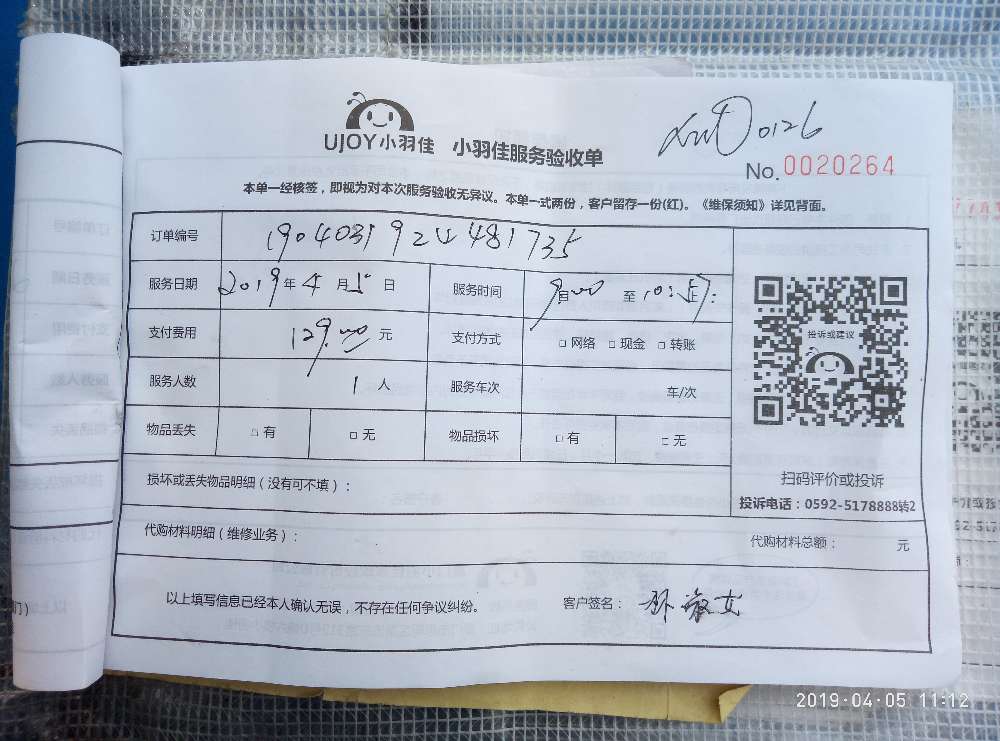 UJOY小羽佳 小羽佳服务验收单
0126
No.0020264
本单一经核签，即视为对本次服务验收无异议。本单一式两份，客户留存一份(红)。《维保须知》详见背面。
订单编号
服务日期 2019年4月5日 服务时间 9:00 至 10:57
支付费用 129.00元 支付方式 □网络 □现金 □转账
服务人数 1人 服务车次 车/次
物品丢失 □有 □无 物品损坏 □有 □无
投诉或建议
扫码评价或投诉
投诉电话：0592-5178888转2
损坏或丢失物品明细（没有可不填）：
代购材料明细（维修业务）： 代购材料总额： 元
以上填写信息已经本人确认无误，不存在任何争议纠纷。 客户签名：
2019-04-05 11:12